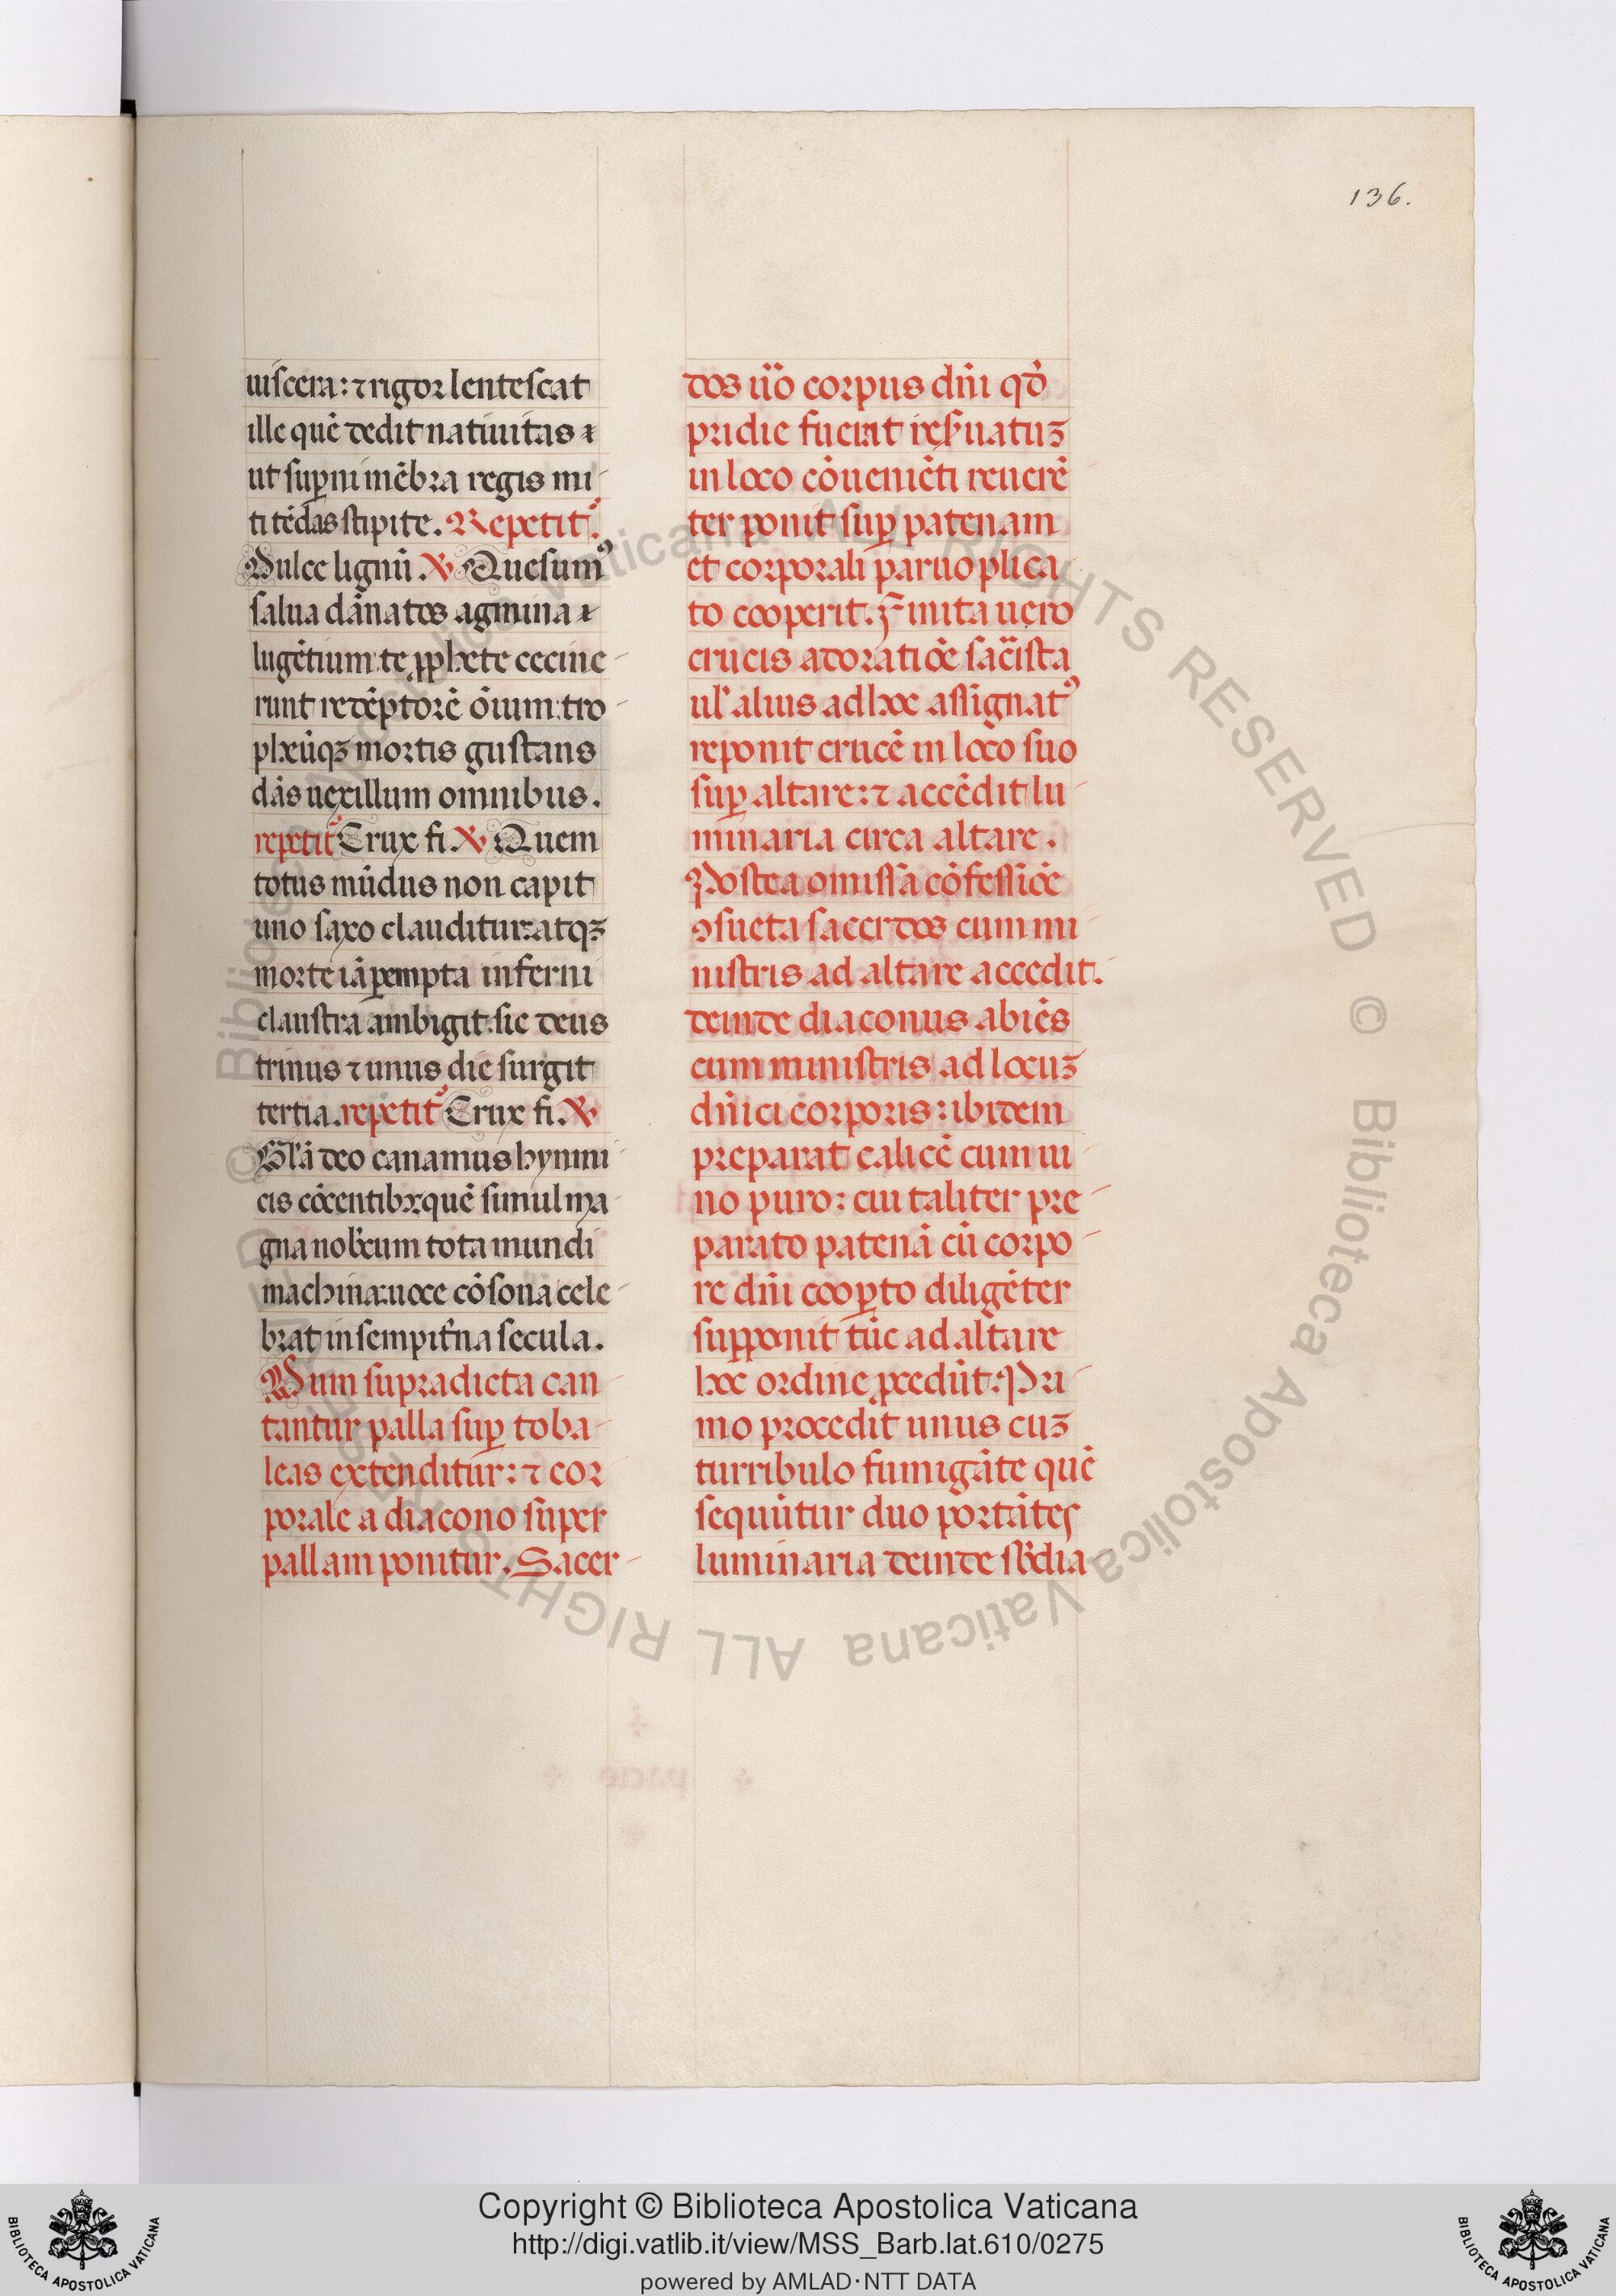 136.
uiscera: ⁊ rigor lentescat
ille quē dedit natiuitas ⁊
ut suꝑni mēbra regis mi-
ti tēdas stipite. Repetit᷑.
Dulce lignū. ℣. Quesumꝰ
salua dānatos agmina ⁊
lugētium: te ꝓphete cecine-
runt redēptorē ōium: tro-
pheūqꝫ mortis gustans
dās uexillum omnibus.
repetit᷑ Crux fi. ℣. Quem
totus mūdus non capit
uno saxo clauditur: atqꝫ
morte iā ꝑempta inferni
claustra ambigit: sic deus
trinus ⁊ unus die surgit
tertia. repetit᷑ Crux fi. ℣.
Glā deo canamus hymni-
cis cōcentibꝫ: quē simul ma-
gna nobcum tota mundi
machina: uoce cōsona cele-
brat in sempit̄na secula.
Dum supradicta can-
tantur palla suꝑ toba-
leas extenditur: ⁊ cor
porale a diacono super
pallam ponitur. Sacer-
dos u̅o corpus dn̄i qd̄
pridie fuerat res̄uatuꝫ
in loco cōueniēti reuerē
ter ponit suꝑ patenam
et corporali paruo plica
to cooperit. Finita uero
crucis adoratiōe sac̄ista
ul̄ alius ad hoc assignatꝰ
reponit crucē in loco suo
suꝑ altare: ⁊ accēdit lu-
minaria circa altare.
Postea omissā cōfessiōe
ꝯsueta sacerdos cum mi-
nistris ad altare accedit.
deinde diaconus abiēs
cum ministris ad locuꝫ
dn̄ici corporis: ibidem
preparat calicē cum ui-
no puro: cui taliter pre-
parato patenā cū corpo-
re dn̄i cooꝑto diligēter
supponit tūc ad altare
hoc ordine ꝓcedūt: Pri-
mo procedit unus cuꝫ
turribulo fumigāte quē
sequūtur duo portātes
luminaria deinde sb̄dia-
© Biblioteca Apostolica Vaticana ALL RIGHTS RESERVED © Biblioteca Apostolica Vaticana ALL RIGHTS RESERVED
BIBLIOTECA APOSTOLICA VATICANA
Copyright © Biblioteca Apostolica Vaticana
http://digi.vatlib.it/view/MSS_Barb.lat.610/0275
powered by AMLAD·NTT DATA
BIBLIOTECA APOSTOLICA VATICANA